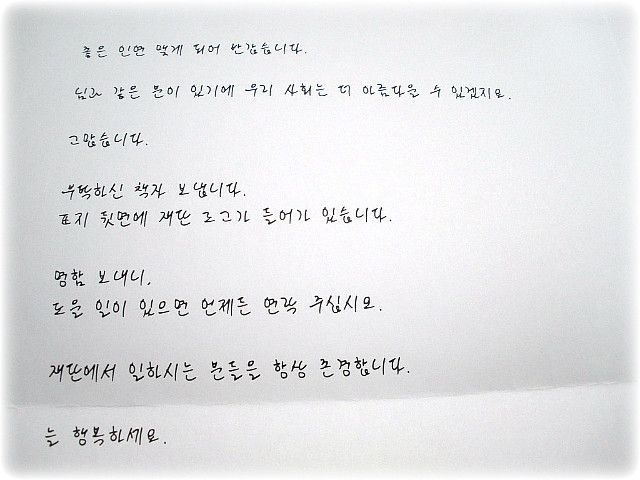 좋은 인연 맺게 되어 반갑습니다.
님과 같은 분이 있기에 우리 사회는 더 아름다울 수 있겠지요.
고맙습니다.
부탁하신 책자 보냅니다.
표지 뒷면에 재단 로고가 들어가 있습니다.
명함 보내니,
도울 일이 있으면 언제든 연락 주십시오.
재단에서 일하시는 분들을 항상 존경합니다.
늘 행복하세요.